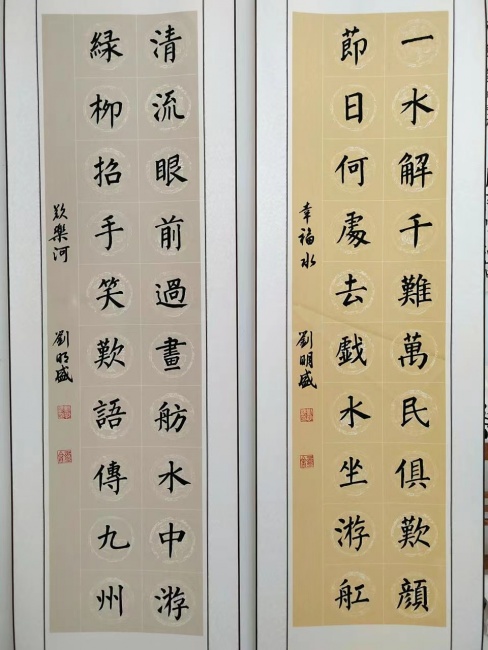 一水解千難萬民俱歎顏
節日何處去戯水坐游舡
幸福水 劉明盛
清流眼前過畫舫水中游
緑柳招手笑歎語傳九州
歎樂河 劉明盛